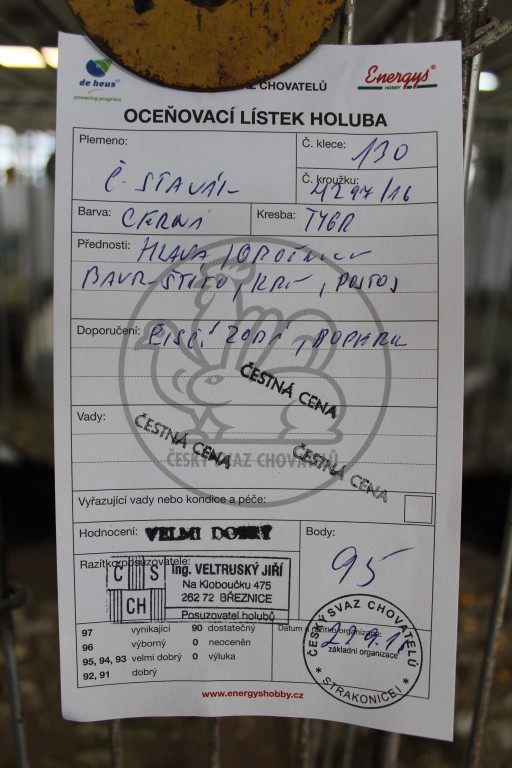 de heus
powering progress
AZ CHOVATELŮ
Energys
HOBBY
OCEŇOVACÍ LÍSTEK HOLUBA
Plemeno:
Č. STAVÁK
Č. klece: 130
Č. kroužku:
4297/16
Barva: ČERNÁ
Kresba: TYGR
Přednosti: HLAVA,
BARVA ŠTÍTŮ, KRK, POSTOJ
Doporučení:
ČESTNÁ CENA
Vady:
ČESTNÁ CENA
ČESTNÁ CENA
ČESKÝ SVAZ CHOVATELŮ
Vyřazující vady nebo kondice a péče:
Hodnocení: VELMI DOBRÝ
Body:
95
Razítko posuzovatele:
Č S
CH
Ing. VELTRUSKÝ JIŘÍ
Na Kloboučku 475
262 72 BŘEZNICE
Posuzovatel holubů
97 vynikající 90 dostatečný
96 výborný 0 neoceněn
95, 94, 93 velmi dobrý 0 výluka
92, 91 dobrý
Datum a razítko organizace:
ČESKÝ SVAZ CHOVATELŮ
základní organizace
* STRAKONICE I *
www.energyshobby.cz